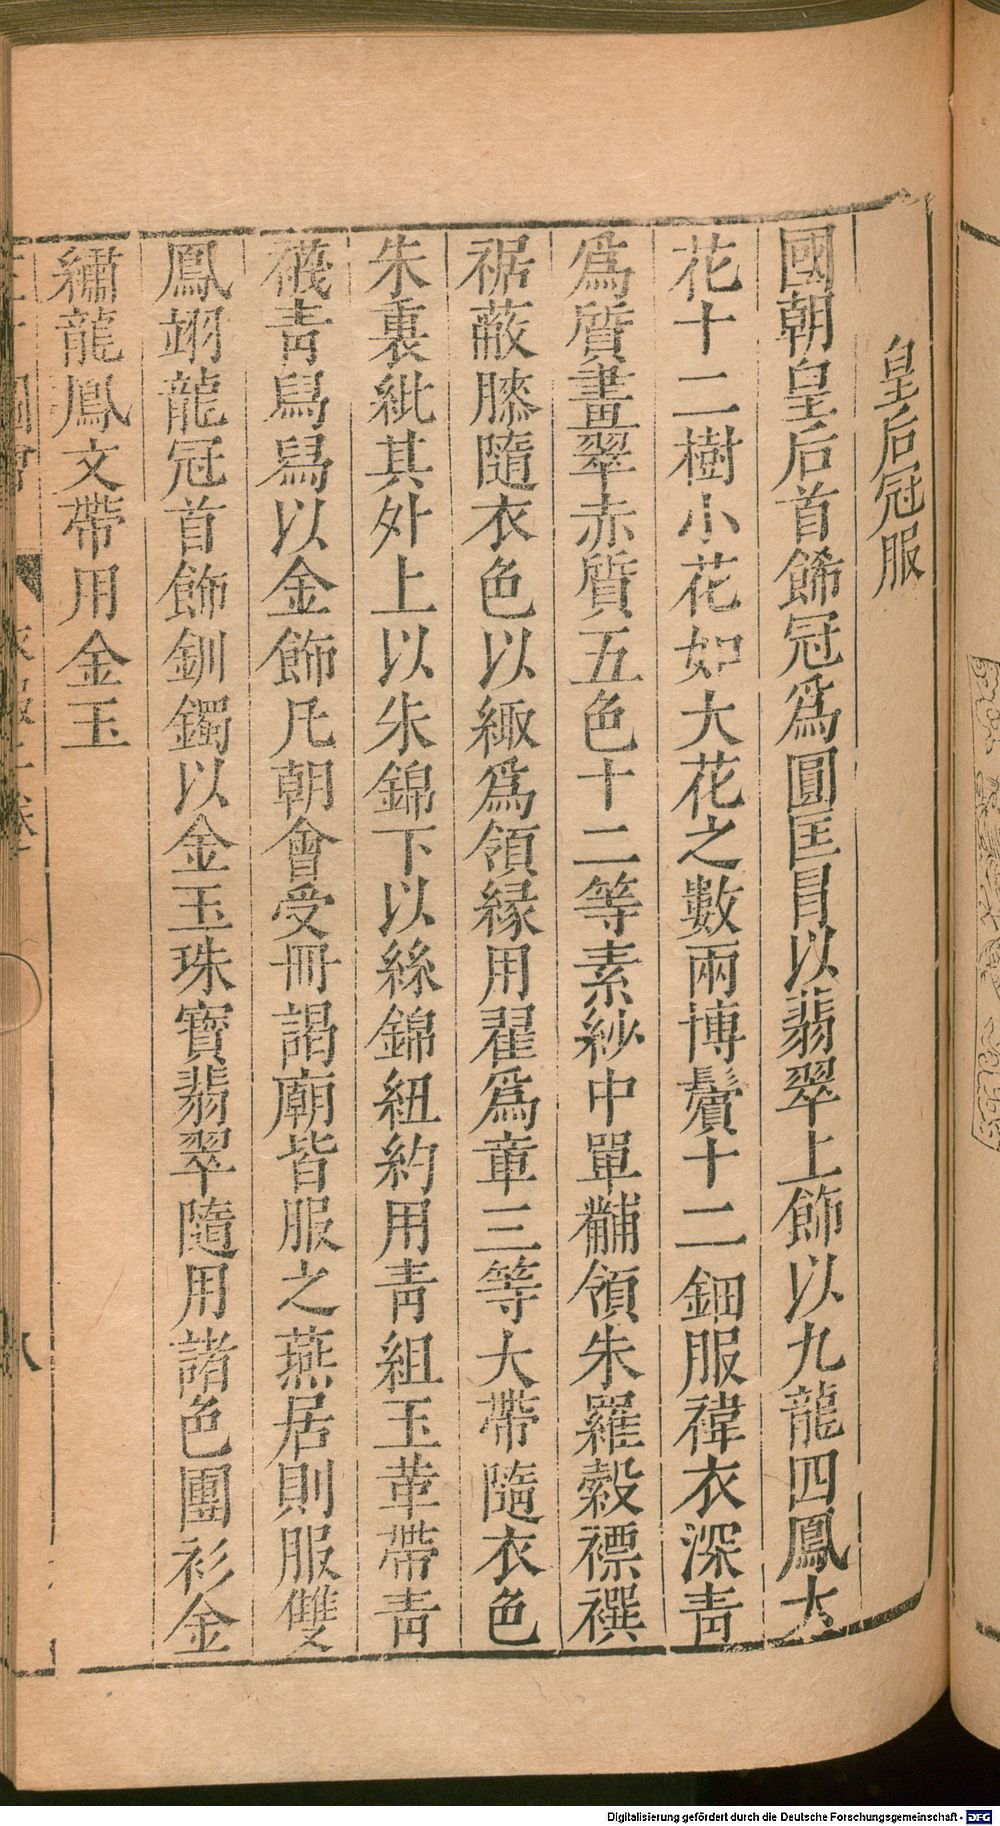 皇后冠服
國朝皇后首餙冠爲圓匡冐以翡翠上飾以九龍四鳳大
花十二樹小花如大花之數兩博鬢十二鈿服褘衣深靑
爲質畫翠赤質五色十二等素紗中單黼領朱羅縠褾襈
裾蔽膝隨衣色以緅爲領緣用翟爲章三等大帶隨衣色
朱裏紕其外上以朱錦下以綠錦紐約用靑組玉革帶靑
襪靑舄舄以金飾凡朝會受冊謁廟皆服之燕居則服雙
鳳翊龍冠首飾釧鐲以金玉珠寶翡翠隨用諸色團衫金
繡龍鳳文帶用金玉
Digitalisierung gefördert durch die Deutsche Forschungsgemeinschaft - DFG